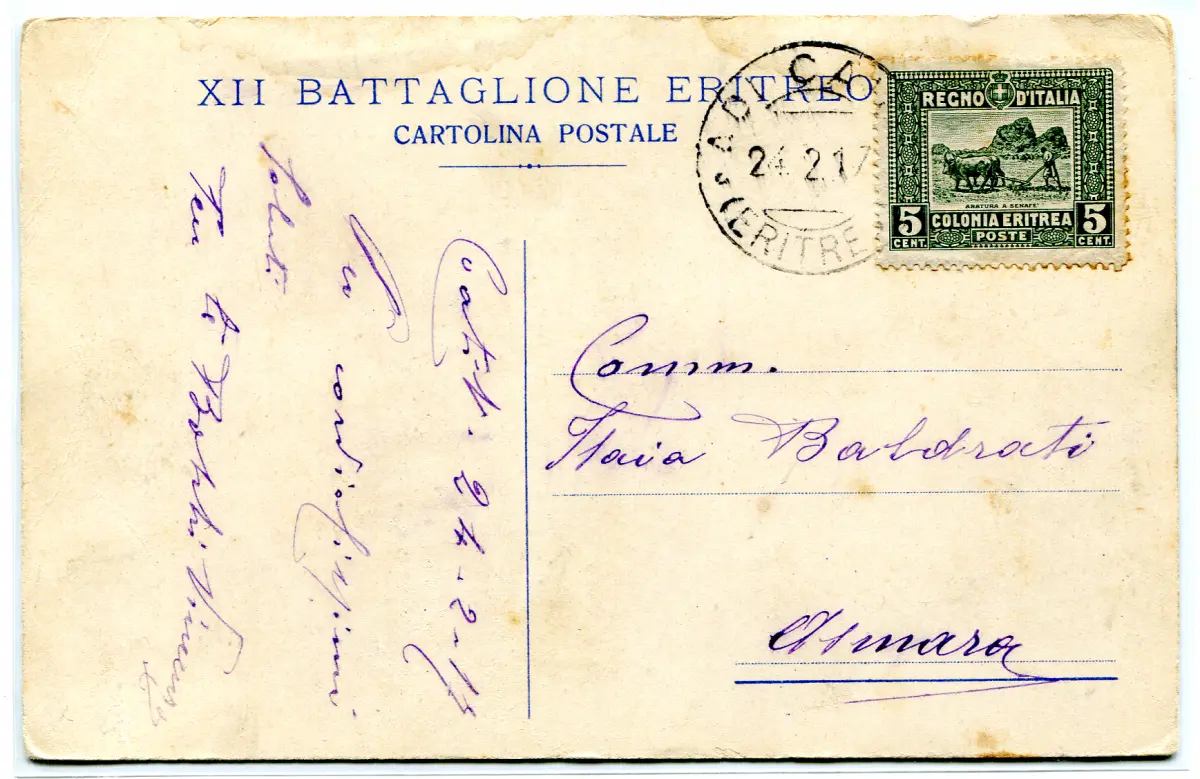 XII BATTAGLIONE ERITREO
CARTOLINA POSTALE
ADI CA
24.2.17
(ERITRE
REGNO D'ITALIA
ARATURA A SENAFE'
5 COLONIA ERITREA 5
CENT. POSTE CENT.
Comm.
Isaia Baldrati
Asmara
24-2-17
cordialissimi
saluti